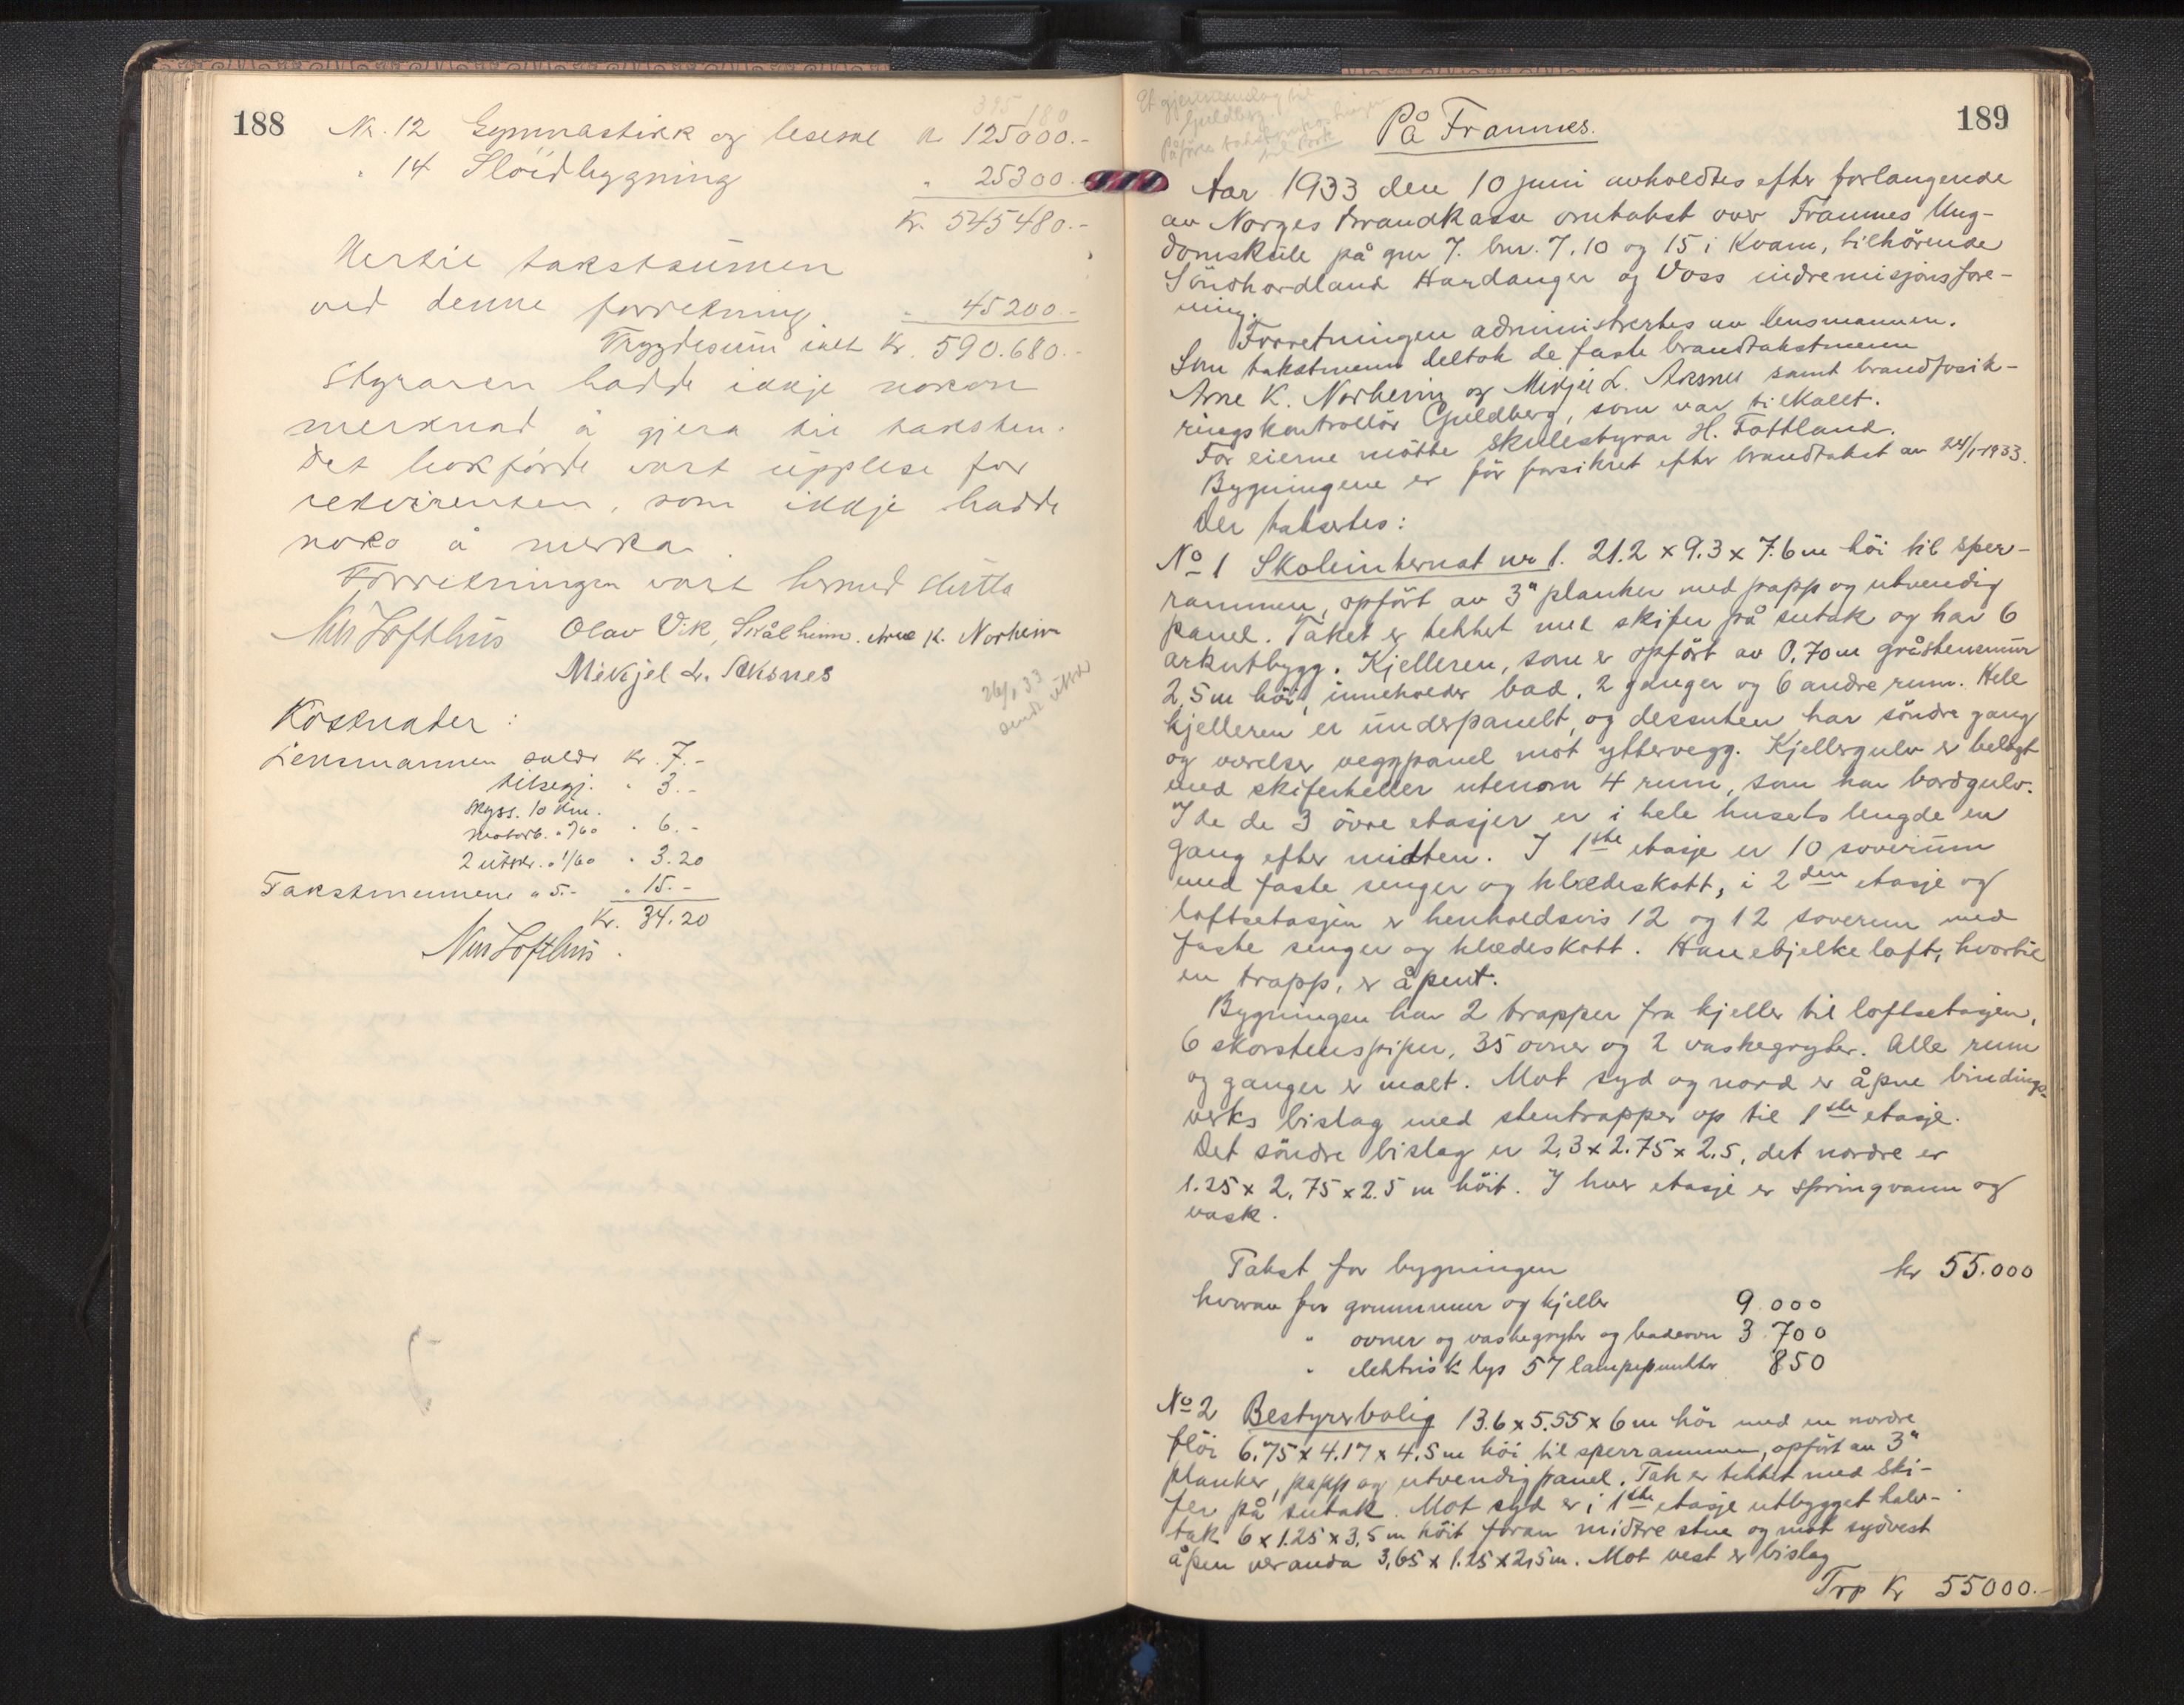 188
395 180
Nr. 12 Gymnastikk og lesesal kr 125000.-
" 14 Slöidbygning " 25300.-
Kr. 545480.-
Hertil takstsumen
ved denne forretning " 45200.-
Trygdesum ialt Kr. 590.680.-
Styraren hadde ikkje nokon
merknad å gjera til taksten.
Det bokførde vart upplese for
rekvirenten, som ikkje hadde
noko å merka.
Forretningen vart hermed slutta
Nils Lofthus Olav Vik, Skålheim. Arne K. Norheim
Mikjel L. Aksnes
26/1 33
sendt utskr
Kostnader:
Lensmannen saldr kr. 7.-
tilsegj. " 3.-
Skyss. 10 km.
motorb. a 60 " 6.-
2 utskr. a 1/60 " 3.20
Takstmennene a 5.- " 15.-
Kr. 34.20
Nils Lofthus.
189
På Framnes.
Aar 1933 den 10 juni avholdtes efter forlangende
av Norges Brandkasse omtakst over Framnes Ung-
domskule på gnr 7. bnr. 7, 10 og 15 i Kvam, tilhörende
Söndhordland Hardanger og Voss indremisjonsfore-
ning.
Forretningen administrertes av lensmannen.
Som takstmenn deltok de faste brandtakstmenn
Arne K. Norheim og Mikjel L. Aksnes samt brandforsik-
ringskontrollör Guldberg, som var tilkalt.
For eierne mötte skulestyrar H. Tottland.
Bygningene er för forsikret efter brandtakst av 24/1-1933.
Der taksertes:
No 1 Skoleinternat nr 1. 21.2 x 9.3 x 7.6 m höi til sper-
rammen, opfört av 3" planker med papp og utvendig
panel. Taket er tekket med skifer på sutak og har 6
arkutbygg. Kjelleren, som er opfört av 0,70 m gråstensmur
2,5 m höi, inneholder bad, 2 ganger og 6 andre rum. Hele
kjelleren er underpanelt, og dessuten har söndre gang
og værelser veggpanel mot yttervegg. Kjellergulv er belagt
med skiferheller utenom 4 rum, som har bordgulv.
I de de 3 övre etasjer er i hele husets lengde en
gang efter midten. I 1ste etasje er 10 soverum
med faste senger og klædeskott, i 2den etasje og
loftsetasjen er henholdsvis 12 og 12 soverum med
faste senger og klædeskott. Hanebjelkeloft, hvortil
en trapp, er åpent.
Bygningen har 2 trapper fra kjeller til loftsetasjen,
6 skorstenspiper, 35 ovner og 2 vaskegryter. Alle rum
og ganger er malt. Mot syd og nord er åpne bindings-
verks bislag med stentrapper op til 1ste etasje.
Det söndre bislag er 2,3 x 2.75 x 2.5, det nordre er
1.25 x 2,75 x 2.5 m höit. I hver etasje er springvann og
vask.
Takst for bygningen kr 55.000
hvorav for grunnmur og kjeller 9.000
" ovner og vaskegryter og badeovn 3.700
" elektrisk lys 57 lampepunkter 850
No 2 Bestyrerbolig 13.6 x 5.55 x 6 m höi med en nordre
flöi 6.75 x 4.17 x 4.5 m höi til sperrammen, opfört av 3"
planker, papp og utvendig panel. Tak er tekket med ski-
fer på sutak. Mot syd er i 1ste etasje utbygget halv-
tak 6 x 1.25 x 3,5 m höit foran midtre stue og mot sydvest
åpen veranda 3,65 x 1.25 x 2,5 m. Mot vest er bislag
Trp Kr 55000.-